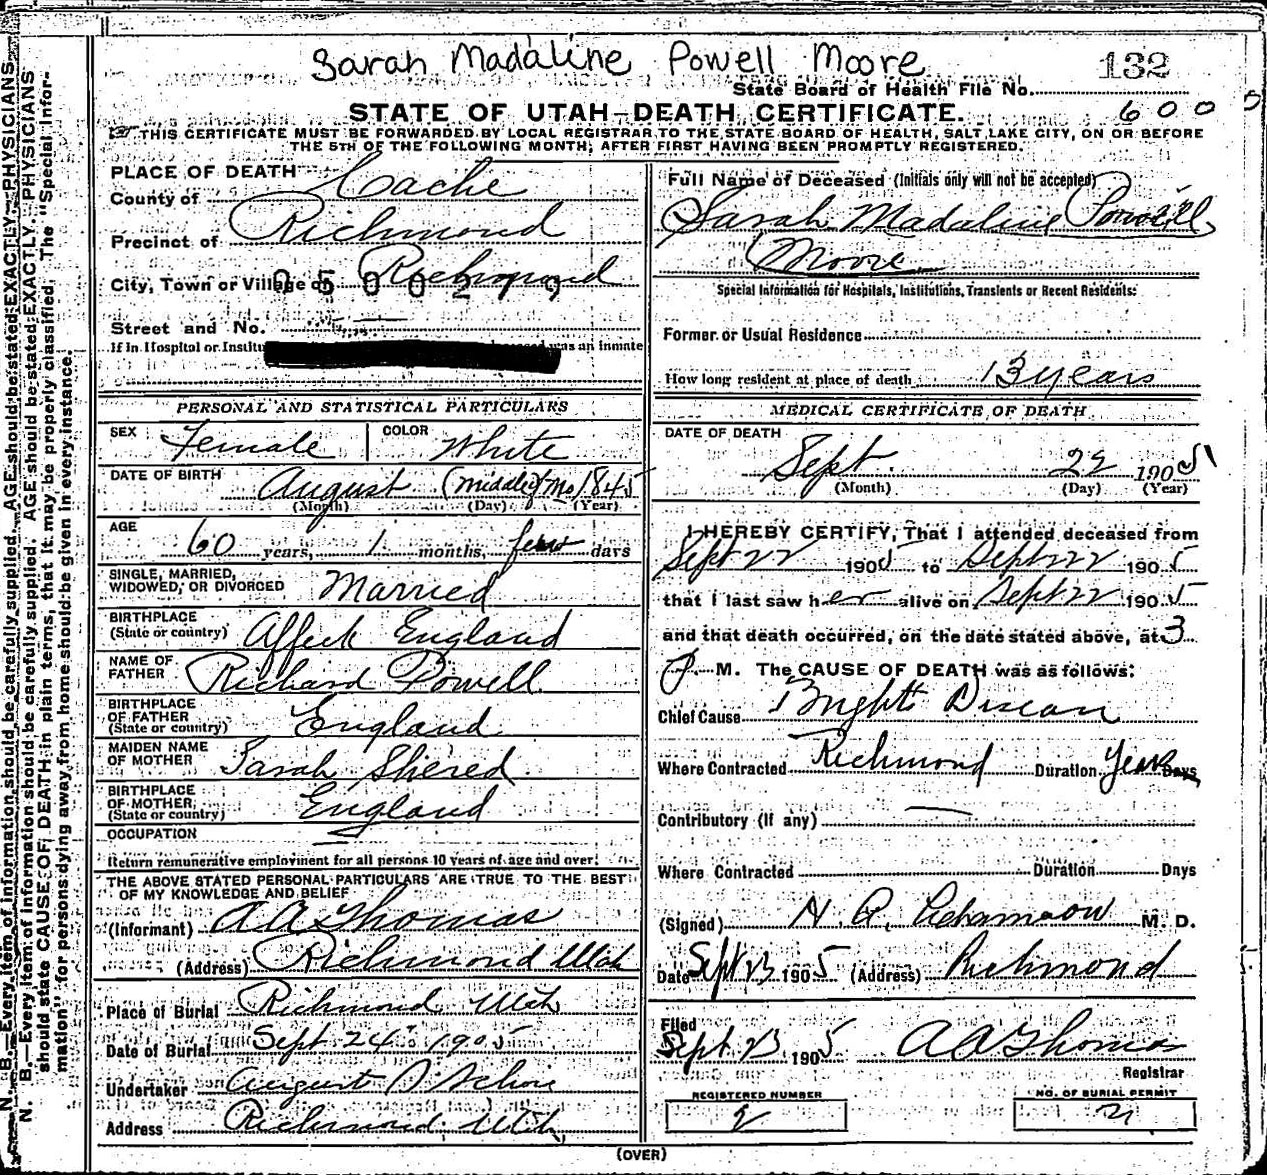 Sarah Madaline Powell Moore
132
State Board of Health File No.
STATE OF UTAH—DEATH CERTIFICATE.
6 0 0 0
THIS CERTIFICATE MUST BE FORWARDED BY LOCAL REGISTRAR TO THE STATE BOARD OF HEALTH, SALT LAKE CITY, ON OR BEFORE
THE 5TH OF THE FOLLOWING MONTH, AFTER FIRST HAVING BEEN PROMPTLY REGISTERED.
PLACE OF DEATH
County of Cache
Precinct of Richmond
City, Town or Village of Richmond
0 5 0 0 2 7 9
Street and No.
If in Hospital or Institu
was an inmate
Full Name of Deceased (Initials only will not be accepted)
Sarah Madaline Powell
Moore
Special Information for Hospitals, Institutions, Transients or Recent Residents:
Former or Usual Residence
How long resident at place of death 13 years
PERSONAL AND STATISTICAL PARTICULARS
SEX Female COLOR White
DATE OF BIRTH August (middle) Mo 1845
(Month) (Day) (Year)
AGE 60 years, 1 months, few days
SINGLE, MARRIED, WIDOWED, OR DIVORCED Married
BIRTHPLACE (State or country) England
NAME OF FATHER Richard Powell
BIRTHPLACE OF FATHER (State or country) England
MAIDEN NAME OF MOTHER Sarah Shered
BIRTHPLACE OF MOTHER (State or country) England
OCCUPATION
Return remunerative employment for all persons 10 years of age and over.
THE ABOVE STATED PERSONAL PARTICULARS ARE TRUE TO THE BEST
OF MY KNOWLEDGE AND BELIEF
(Informant) A A Thomas
(Address) Richmond Utah
Place of Burial Richmond Utah
Date of Burial Sept 24 1905
Undertaker August
Address Richmond, Utah
MEDICAL CERTIFICATE OF DEATH
DATE OF DEATH
Sept. 22 1905
(Month) (Day) (Year)
I HEREBY CERTIFY, That I attended deceased from
Sept 22 1905 to Sept 22 1905
that I last saw her alive on Sept 22 1905
and that death occurred, on the date stated above, at 3
P. M. The CAUSE OF DEATH was as follows:
Chief Cause Brights Disease
Where Contracted Richmond Duration Years Days
Contributory (If any) —
Where Contracted Duration Days
(Signed) M. D.
Date Sept 23 1905 (Address) Richmond
Filed
Sept 23 1905 A A Thomas
Registrar
REGISTERED NUMBER
NO. OF BURIAL PERMIT
(OVER)
N. B.—Every item of information should be carefully supplied. AGE should be stated EXACTLY. PHYSICIANS
N. B.—Every item of information should be carefully supplied. AGE should be stated EXACTLY. PHYSICIANS
should state CAUSE OF DEATH in plain terms, that it may be properly classified. The "Special Infor-
mation" for persons dying away from home should be given in every instance.